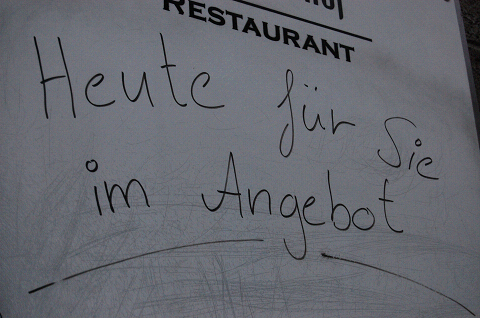 RESTAURANT
Heute für Sie
im Angebot